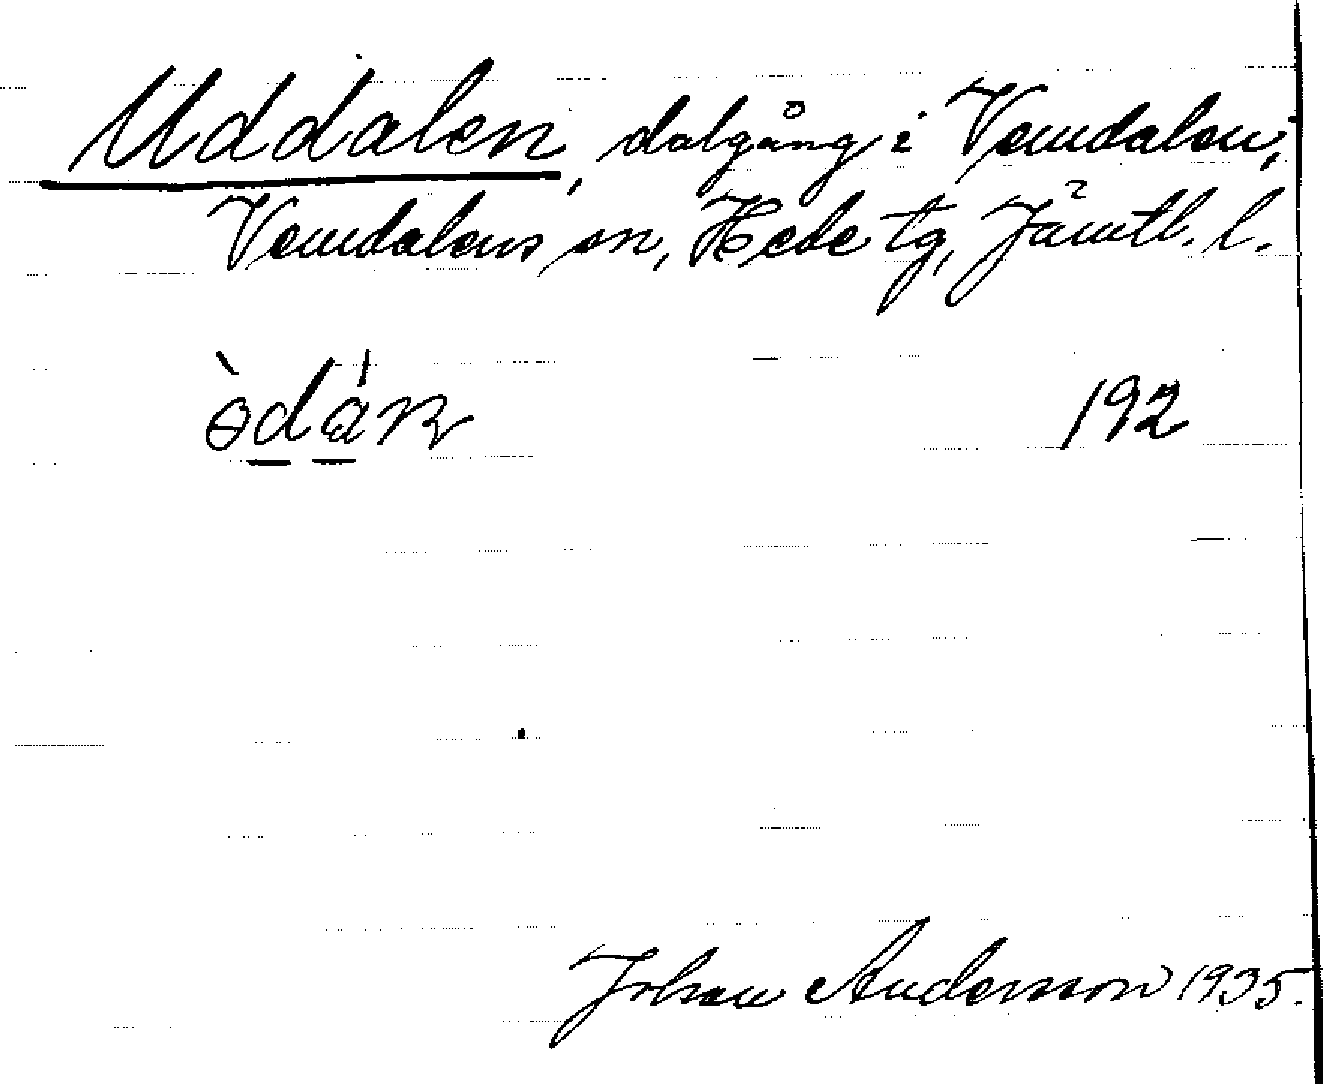 Uddalen, dalgång i Vemdalen,
Vemdalens sn, Hede tg, Jämtl. l.
192
Johan Andersson 1935.